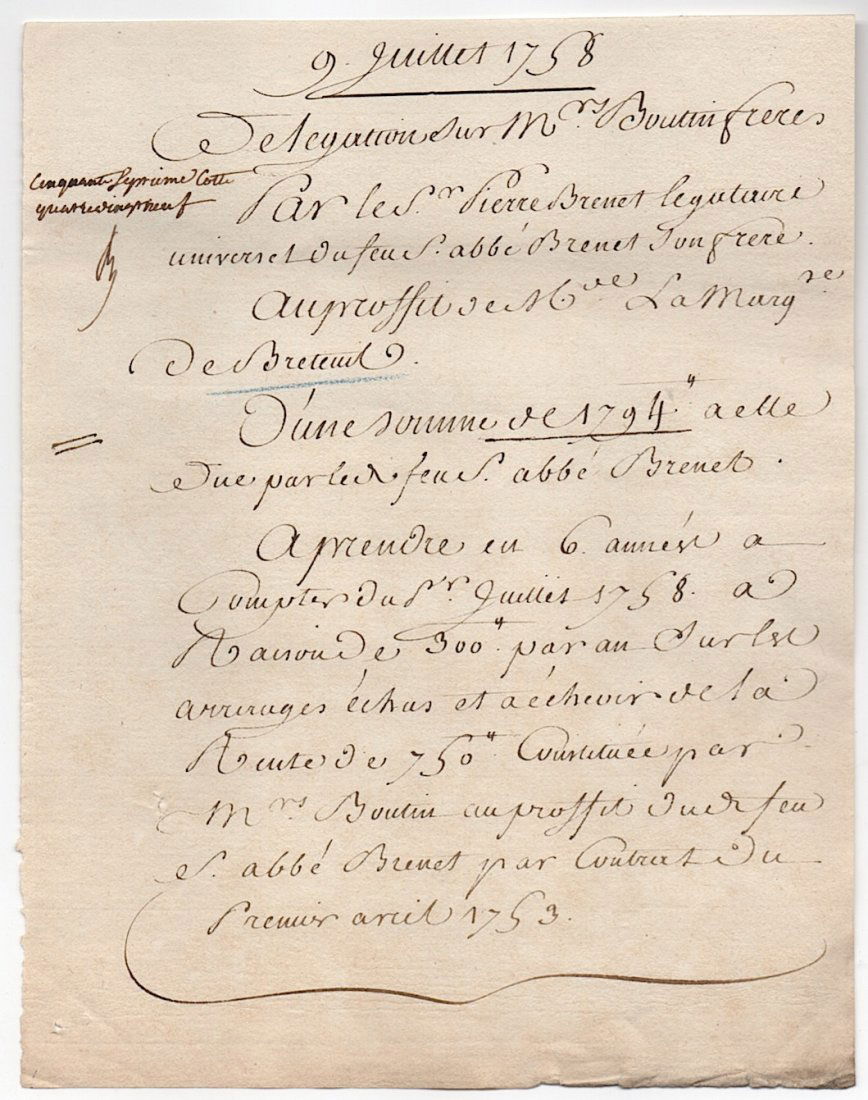 9 Juillet 1758
Delegation sur Mrs Boutin freres
Cinquante Septieme Cotte
quatrevingt neuf
Par le Sr Pierre Brenet legataire
universel du feu S. abbé Brenet son frere.
au proffit de Mde La Marqse
De Breteuil.
D'une somme de 1794" a elle
Due par led feu S. abbé Brenet.
A prendre en 6. années a
Compter du Pr. Juillet 1758. a
Raison de 300" par an sur les
arrerages échus et a échoir de la
Rente de 750" Constituée par
Mrs Boutin au proffit dud feu
S. abbé Brenet par Contrat du
Premier avril 1753.